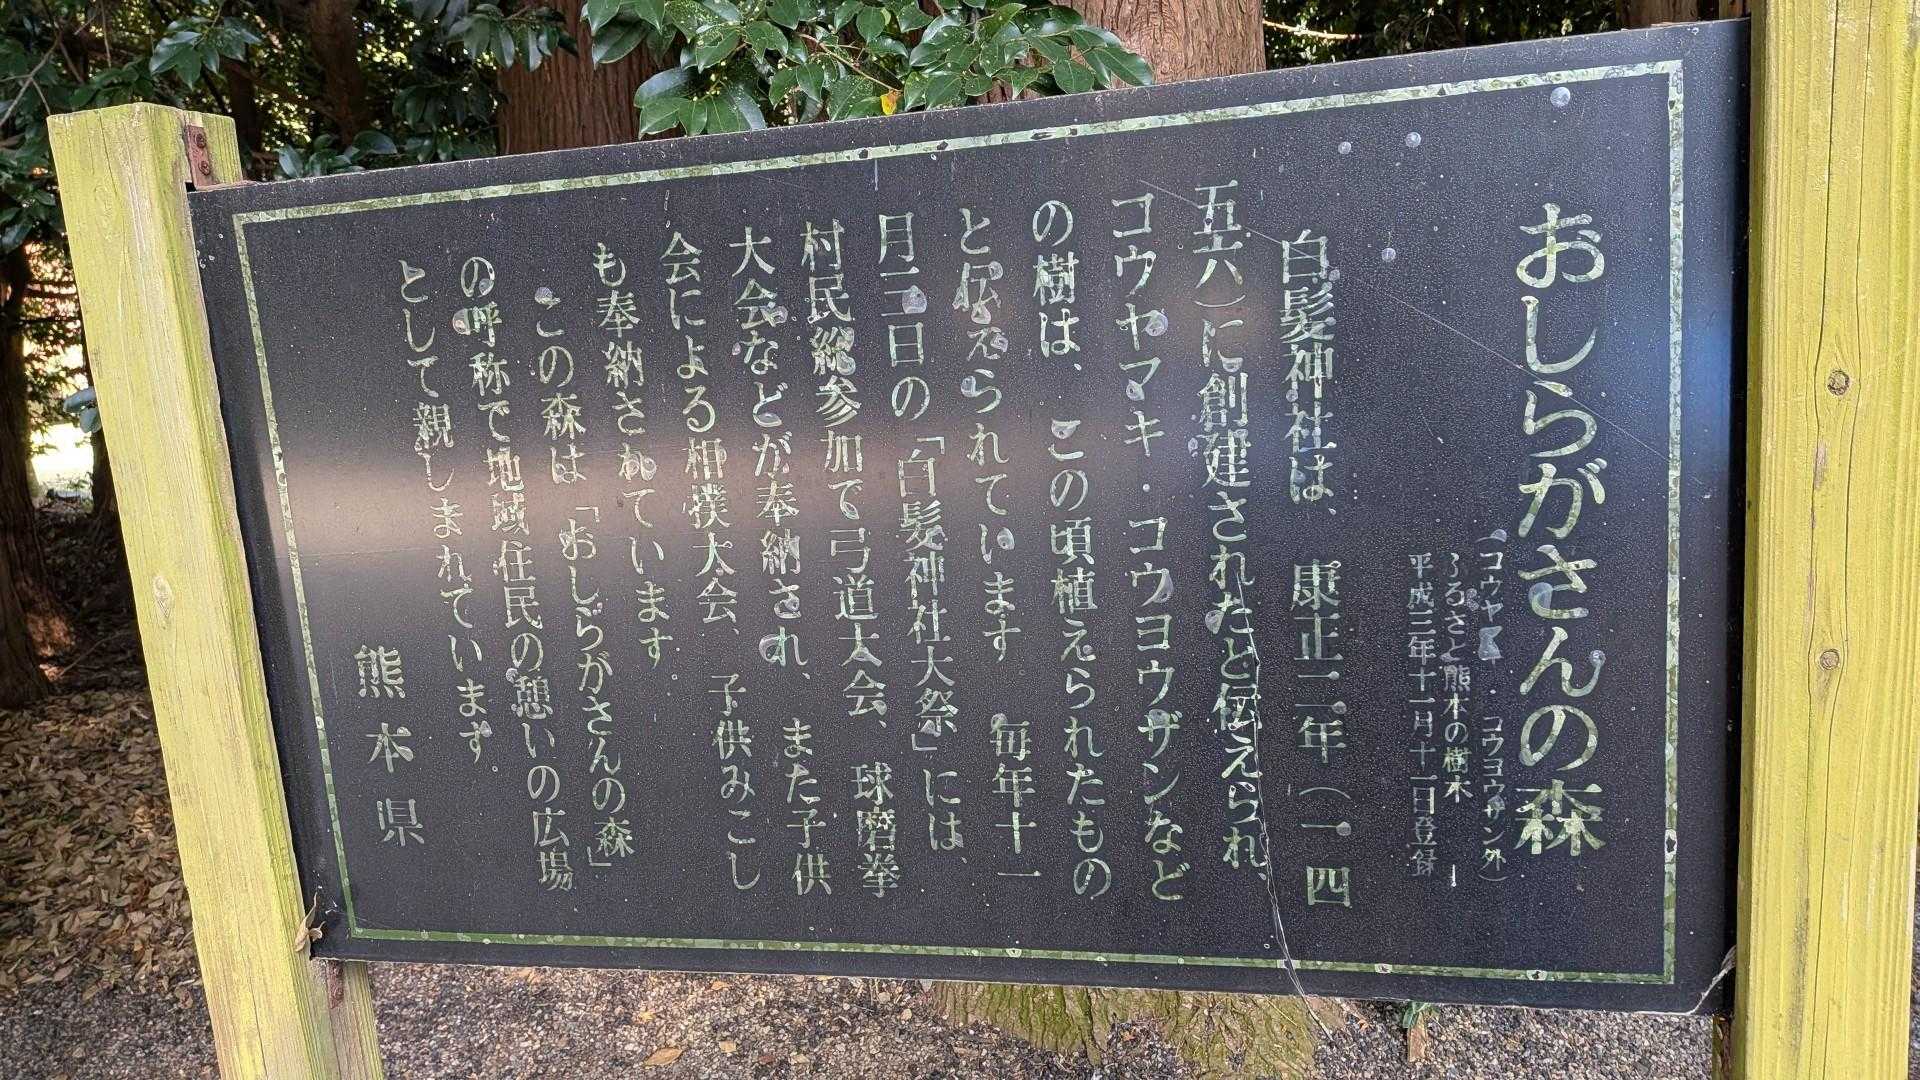 おしらがさんの森
（コウヤマキ・コウヨウザン外）
ふるさと熊本の樹木
平成三年十一月十一日登録
白髪神社は、康正二年（一四
五六）に創建されたと伝えられ、
コウヤマキ・コウヨウザンなど
の樹は、この頃植えられたもの
と伝えられています 毎年十一
月三日の「白髪神社大祭」には、
村民総参加で弓道大会、球磨拳
大会などが奉納され、また子供
会による相撲大会、子供みこし
も奉納されています
この森は「おしらがさんの森」
の呼称で地域住民の憩いの広場
として親しまれています。
熊本県